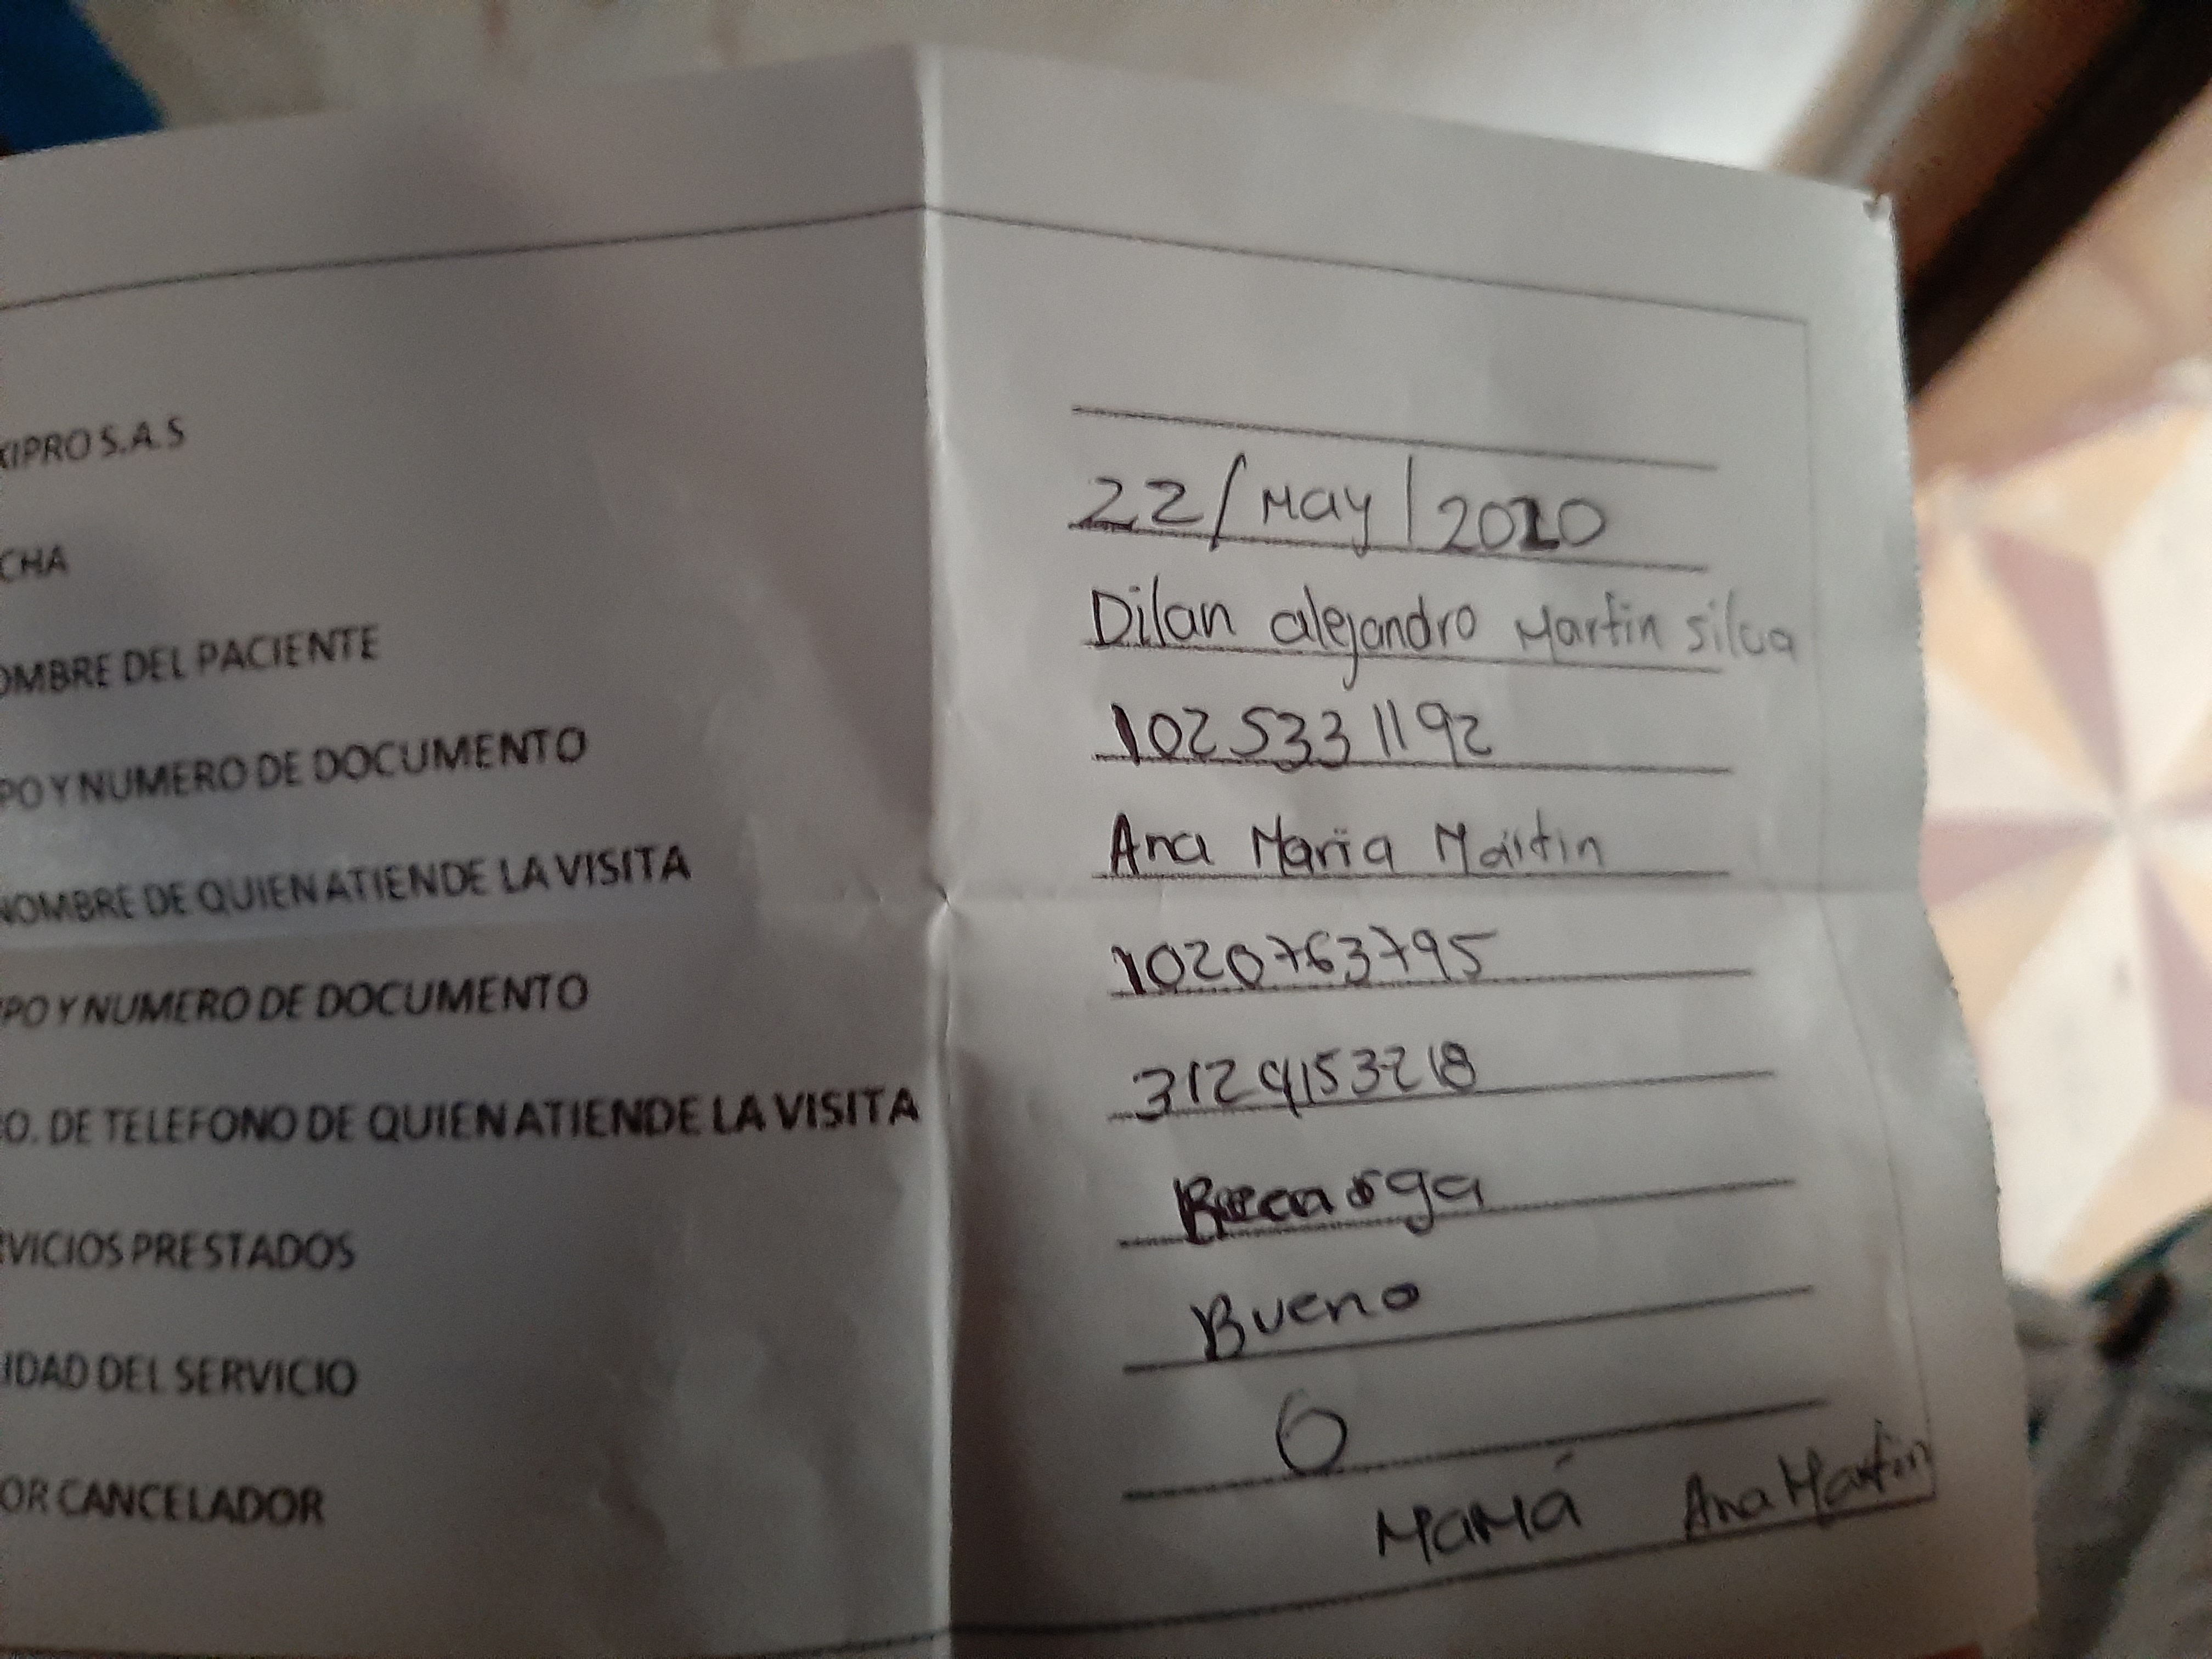 XIPRO S.A.S
CHA 22/May/2020
OMBRE DEL PACIENTE Dilan alejandro Martin silva
PO Y NUMERO DE DOCUMENTO 1025331192
NOMBRE DE QUIEN ATIENDE LA VISITA Ana Maria Martin
PO Y NUMERO DE DOCUMENTO 1020763795
O. DE TELEFONO DE QUIEN ATIENDE LA VISITA 3124153218
VICIOS PRESTADOS
IDAD DEL SERVICIO Bueno
OR CANCELADOR 0
MAMá Ana Martin